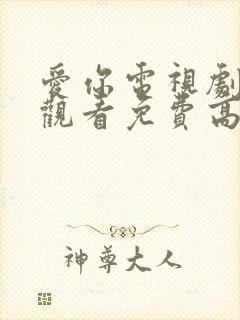 愛你電視劇
觀看免費高
神尊大人